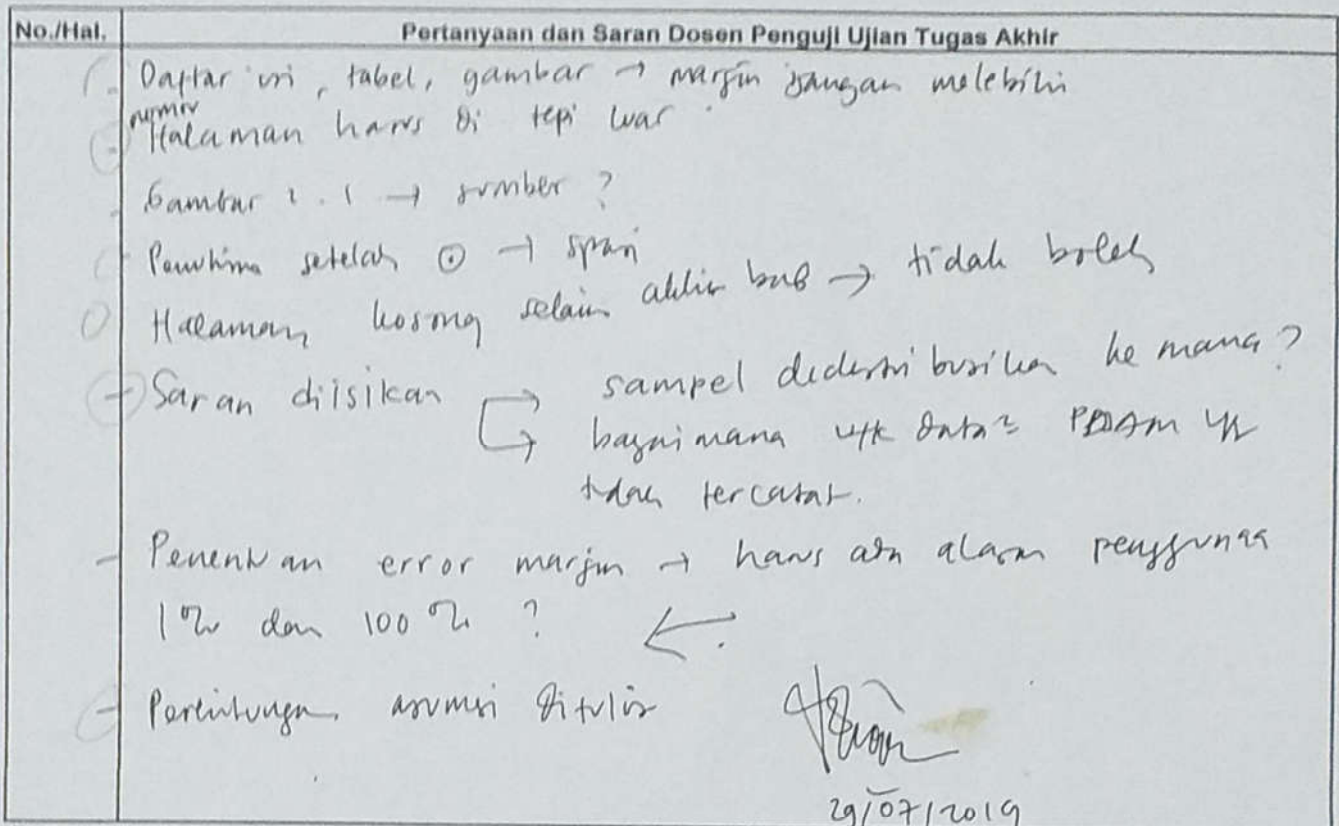 No./Hal.
Pertanyaan dan Saran Dosen Penguji Ujian Tugas Akhir
- Daftar isi, tabel, gambar → margin jangan melebihi
- nomor Halaman harus di tepi luar.
- Gambar 2.1 → sumber ?
setelah ⊙ → spasi
Halaman kosong selain akhir bab → tidak boleh
- Saran diisikan → sampel didistribusikan ke mana ?
→ bagaimana utk data² PDAM yg
tidak tercatat.
- Penentuan error margin → harus ada alasan penggunaan
1% dan 100% ? ←
- Perhitungan asumsi ditulis
29/07/2019